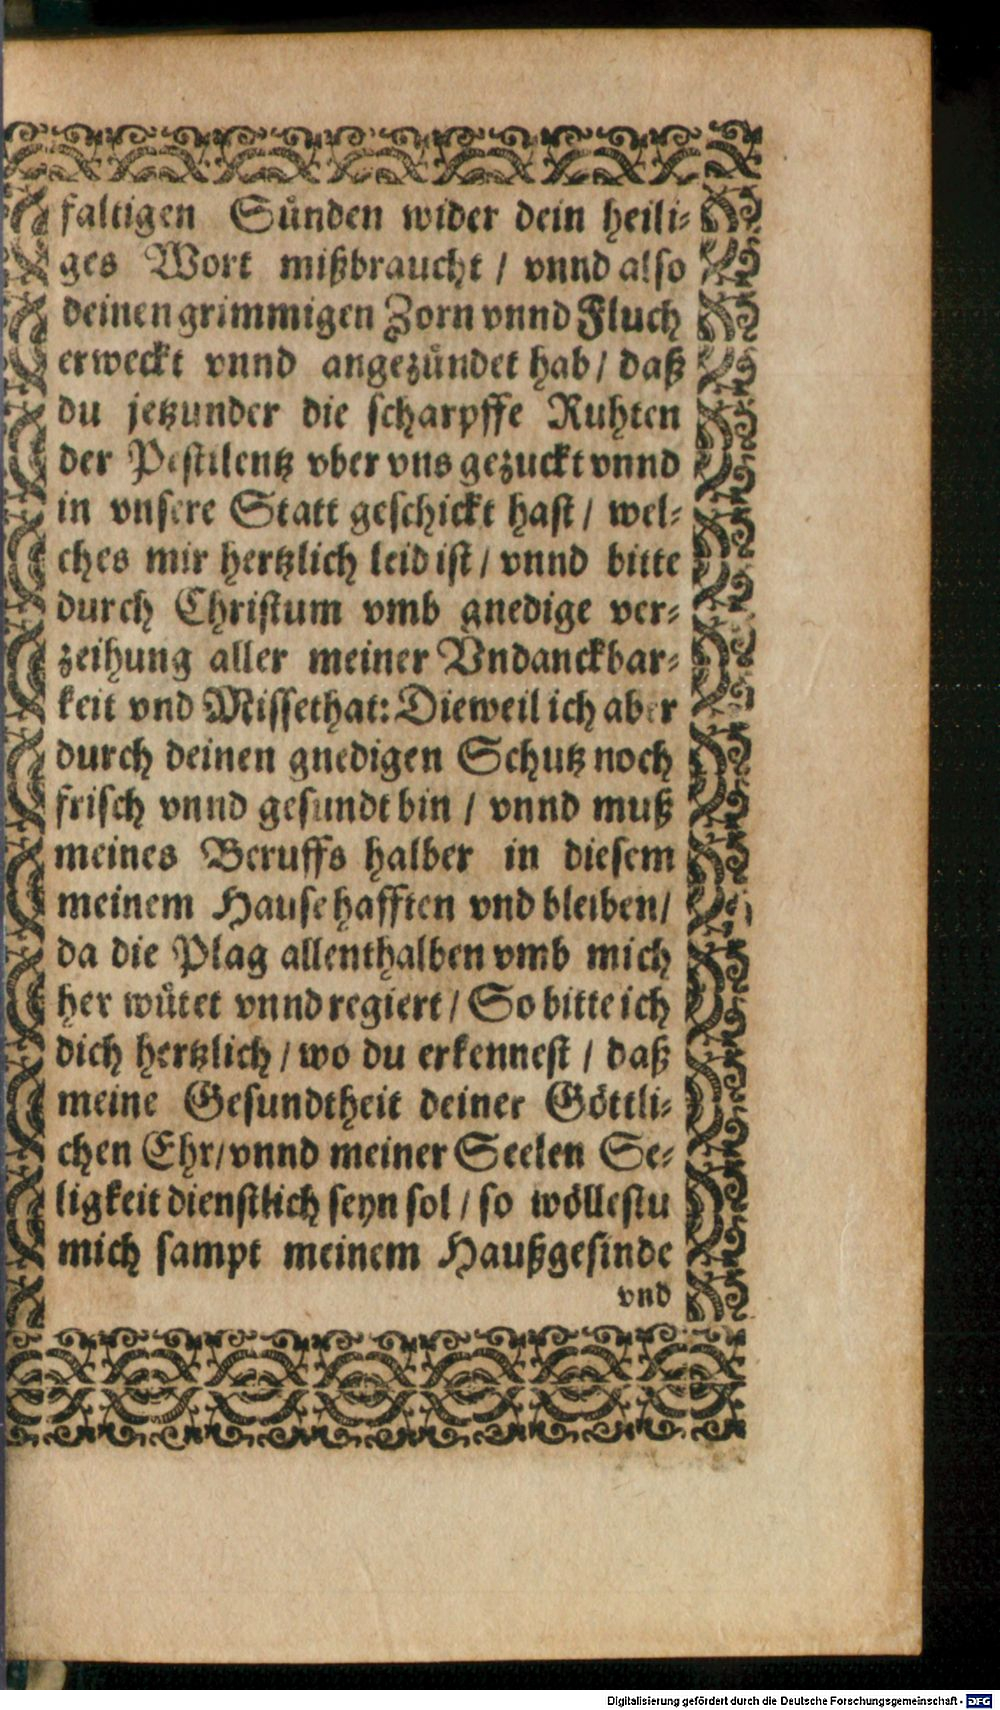 faltigen Sünden wider dein heili-
ges Wort mißbraucht / vnnd also
deinen grimmigen Zorn vnnd Fluch
erweckt vnnd angezündet hab / daß
du jetzunder die scharpffe Ruhten
der Pestilentz vber vns gezuckt vnnd
in vnsere Statt geschickt hast / wel-
ches mir hertzlich leid ist / vnnd bitte
durch Christum vmb gnedige ver-
zeihung aller meiner Vndanckbar-
keit vnd Missethat: Dieweil ich aber
durch deinen gnedigen Schutz noch
frisch vnnd gesundt bin / vnnd muß
meines Beruffs halber in diesem
meinem Hause hafften vnd bleiben /
da die Plag allenthalben vmb mich
her wütet vnnd regiert / So bitte ich
dich hertzlich / wo du erkennest / daß
meine Gesundtheit deiner Göttli-
chen Ehr / vnnd meiner Seelen Se-
ligkeit dienstlich seyn sol / so wöllestu
mich sampt meinem Haußgesinde
vnd
Digitalisierung gefördert durch die Deutsche Forschungsgemeinschaft - DFG